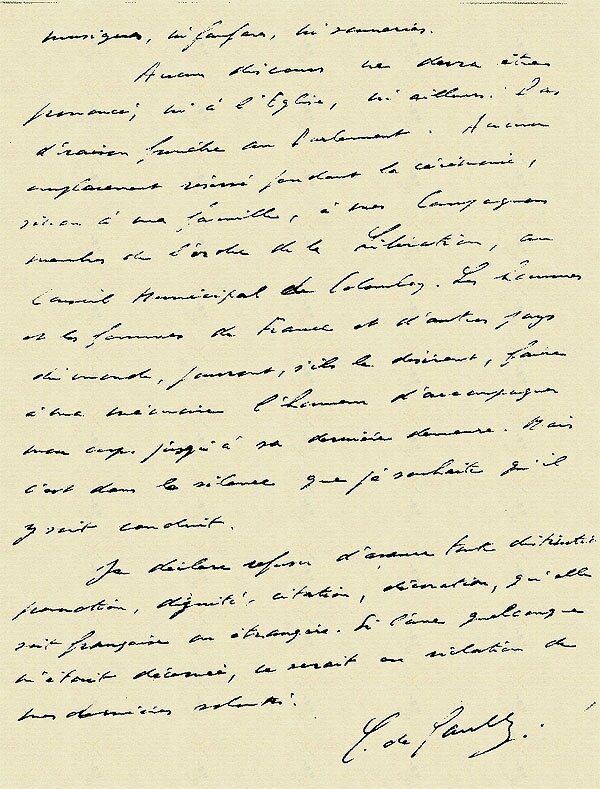 musiques, ni fanfare, ni sonneries.
Aucun discours ne devra être
prononcé, ni à l'Eglise, ni ailleurs. Pas
d'oraison funèbre au Parlement. Aucun
emplacement réservé pendant la cérémonie,
sinon à ma famille, à mes Compagnons
membres de l'ordre de la Libération, au
Conseil Municipal de Colombey. Les hommes
et les femmes de France et d'autres pays
du monde, pourront, s'ils le désirent, faire
à ma mémoire l'honneur d'accompagner
mon corps jusqu'à sa dernière demeure. Mais
c'est dans le silence que je souhaite qu'il
y soit conduit.
Je déclare refuser d'avance toute distinction
promotion, dignité, citation, décoration, qu'elle
soit française ou étrangère. Si l'une quelconque
m'était décernée, ce serait en violation de
mes dernières volontés.
C. de Gaulle.